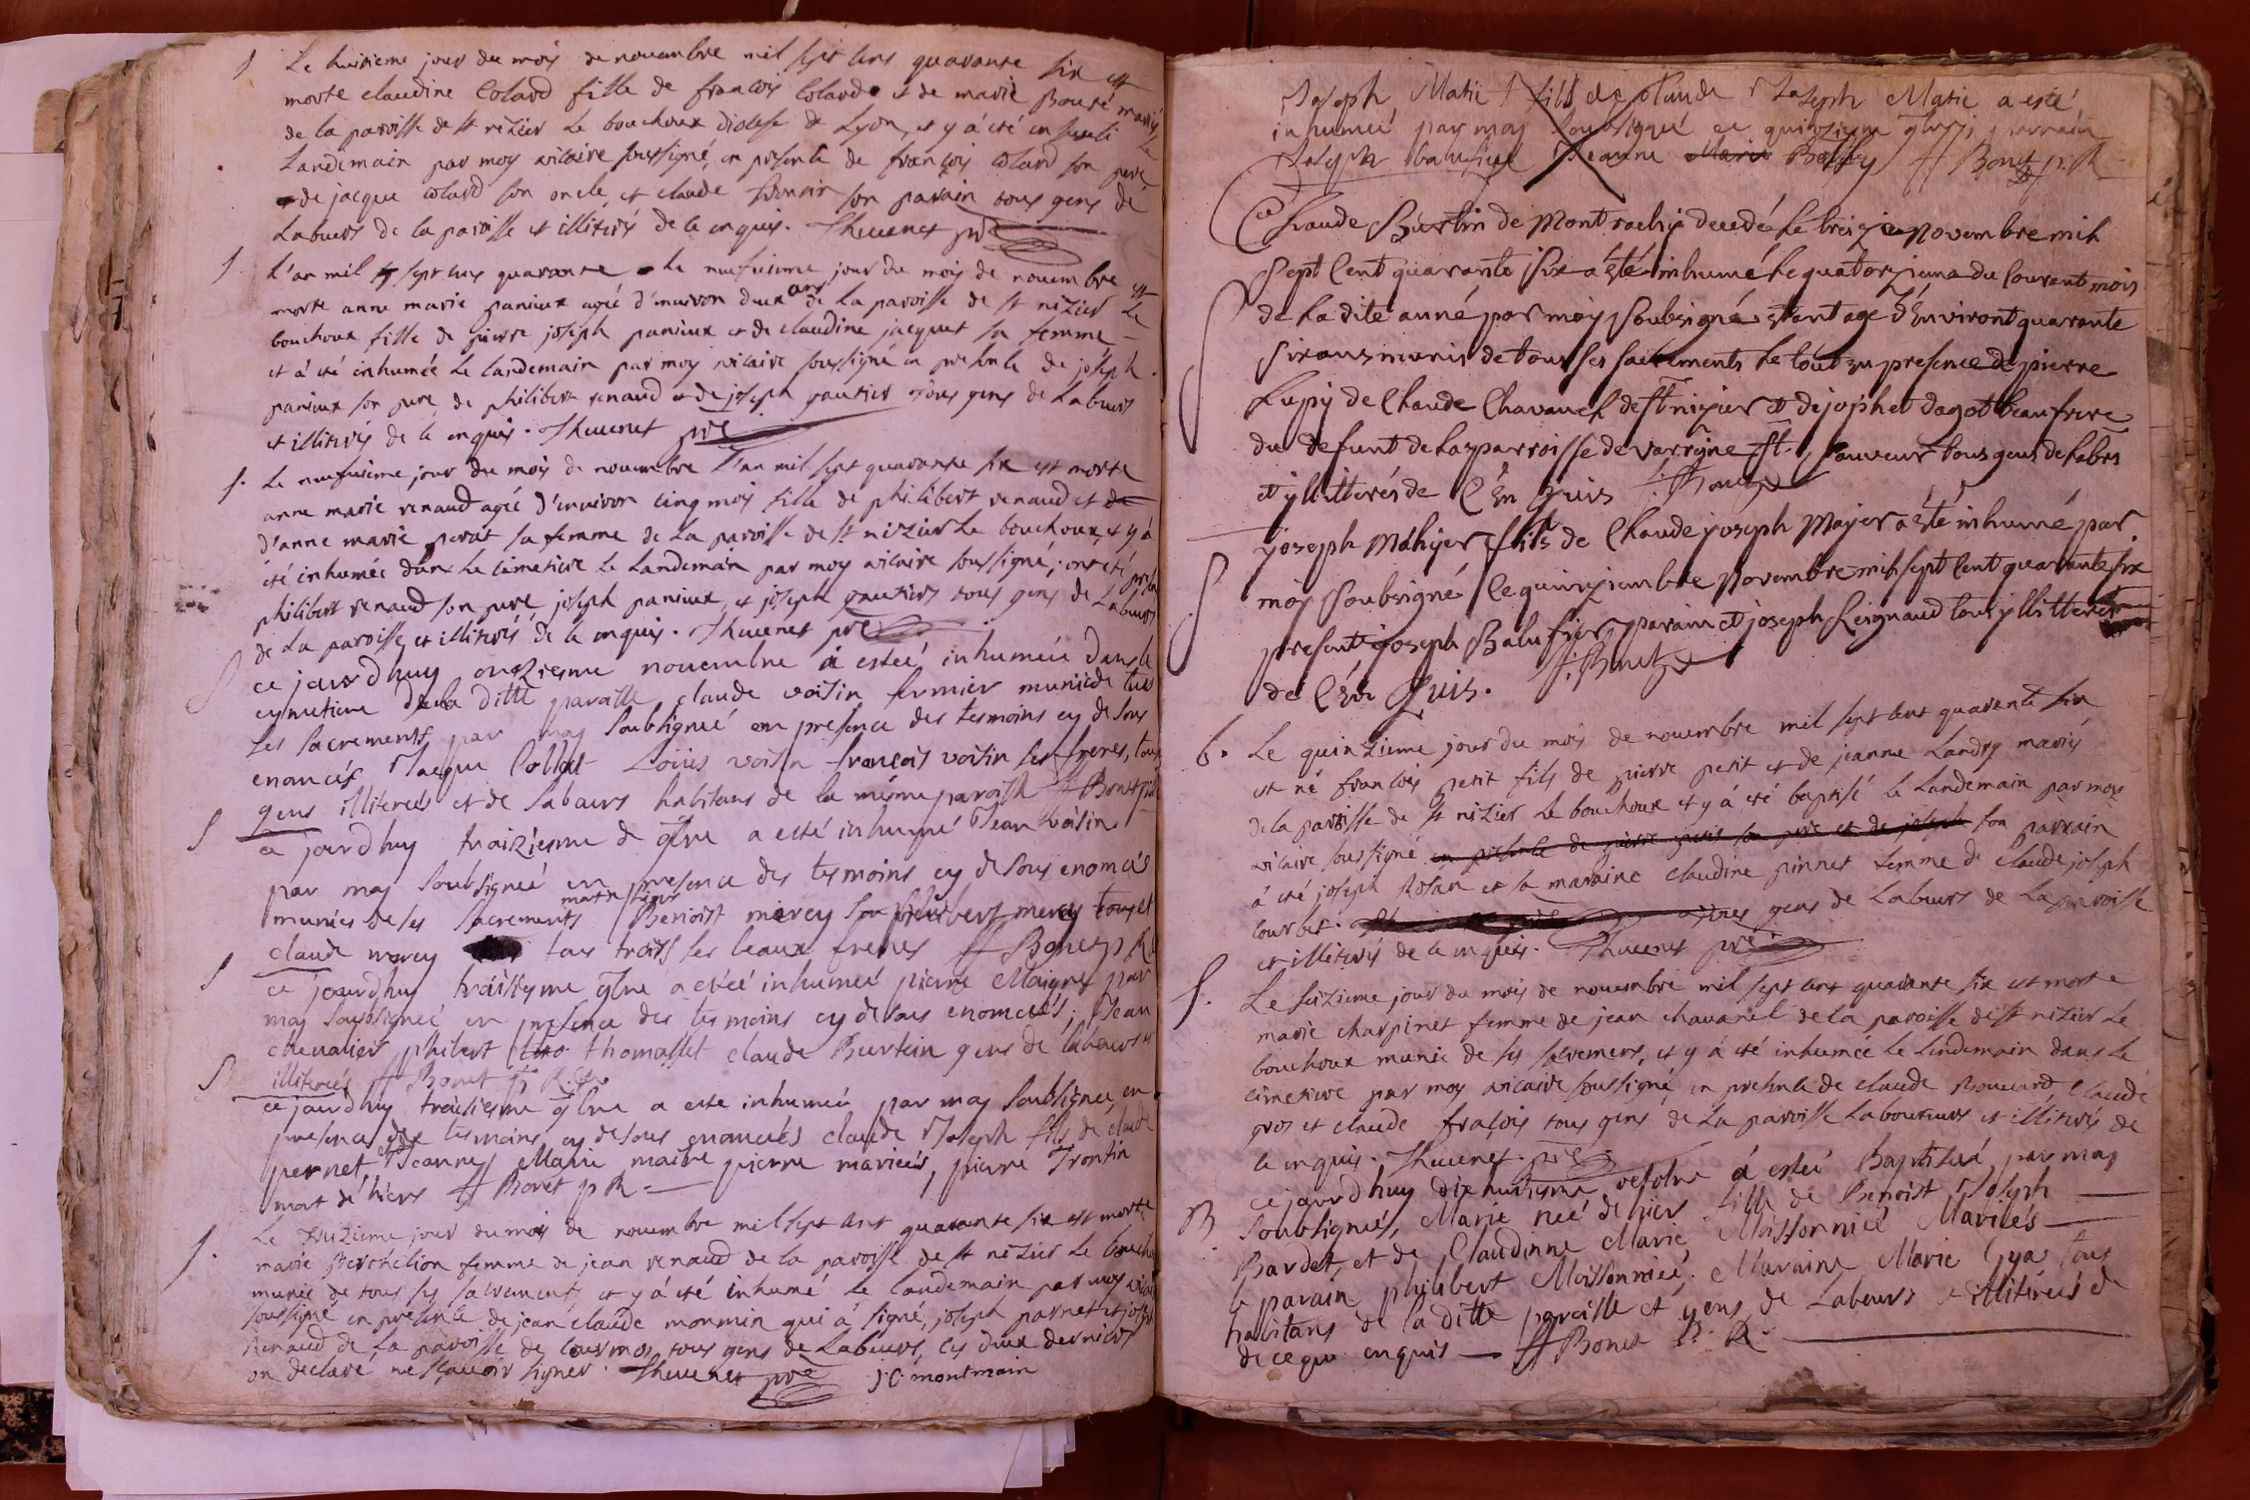 S Le huitieme jour du mois de nouembre mil sept cens quarante six est
morte claudine Colard fille de françois Colard et de marie mariés
de la paroisse de st nizier Le bouchoux diocese de Lyon, et y á été enseueli Le
Landemain par moy vicaire soussigné, en presence de françois Colard son pere
de jacque Colard son oncle, et claude son parain tous gens de
Labeurs de la paroisse et illiterés de ce enquis. Theuenet pre
S L'an mil sept cens quarante Le neufuieme jour du mois de nouembre est
morte anne marie panieux agée d'enuiron deux ans de La paroisse de st nizier Le
bouchoux, fille de pierre joseph panieux et de claudine jacquet sa femme
et á été inhumée Le Landemain par moy vicaire soussigné en presence de joseph
panieux son pere, de philibert renaud et de joseph gautier tous gens de Labeurs
et illiterés de ce enquis. Theuenet pre
S. Le neufuieme jour du mois de nouembre L'an mil sept quarante six est morte
anne marie renaud agée d'enuiron cinq mois fille de philibert renaud et de
d'anne marie perat sa femme de La paroisse de st nizier Le bouchoux, et y á
été inhumée dans Le cimetiere Le Landemain par moy vicaire soussigné; ont été présens
philibert renaud son pere, joseph panieux, et joseph gautiers tous gens de Labeurs
de La paroisse, et illiterés de ce enquis. Theuenet pre
S ce jourdhuy onziesme nouembre à esteé inhumée dans le
cymetiere de la ditte paroisse claude voisin fermier munie de tus
ses sacrements par moy soubsigneé en presence des tesmoins cy desous
enoncés Jacque Collat Loüis voisin françois voisin ses freres, tous
gens illiterés et de Labaurs habitans de la même paroisse ff Bonet pR
S ce jourdhuy traiziesme de 9bre a esté inhumé Jean voisin
par moy soubsigneé en presence des tesmoins cy desous enomcés
munies de ses sacrements Benoist mercy philibert mercy tous et
claude mercy tous trois ses beaux freres ff Bonet pR
S ce jourdhuy traissyeme 9bre a esteé inhumeé pierre Maigne par
moy soubsigneé en presence des tesmoins cy desous enomcés; Jean
cheualier philbert thomasset claude Burtein gens de labeurs et
illiterés ff Bonet p R.
S ce jourdhuy traisiesme 9bre a esté inhumeé par moy soubsigneé, en
presence des tesmoins cy desous enomcés claude Joseph fils de claude
pernet et Jeanne Marie maitre pierre marieés, pierre Trontin
mort de hiers ff Bonet p R
S. Le treizieme jour du mois de nouembre mil sept cens quarante six est morte
marie femme de jean renaud de la paroisse de st nizier Le bouchoux
munie de tous ses sacrements, et y á été inhumé Le Landemain par moy vicaire
soussigné en presence de jean claude monmin qui á signé, joseph parnet et joseph
renaud de La paroisse de courmos, tous gens de Labeurs, Les deux derniers
on declaré ne sçauoir signer. Theuenet pre J C montmain
Joseph Matie fils de claude Joseph Matie a esté
inhumeé par moy soubsigné ce quinzieme 9bre, parrain
Joseph balufier Jeanne Marie ff Bonet p. R
Claude Burtin de Montrachy decedé Le treizie novembre mil
sept Cent quarante six a esté inhumé Le quatorzieme du Courent mois
de La dite anné par moy soubsigné etant agé d'Environt quarante
six ans munis de tous ses sacrements Le tout en presence de pierre
Lupy de Claude Chavanel de St nizier et de jophet dagot beaufrere
du defunt de Laz parroisse de varrgne St. Sauveur tous gens de Labrs
et yllitterés de C'en Quis f. Bonet p
S joseph Mahyer fils de Claude joseph Mayer a esté inhumé par
moy soubsigné Le quinziembre Novembre mil sept Cent quarante six
present joseph Balufier parain et joseph Reignaud tous yllitterés
de C'en Quis. f. Bonet p
b. Le quinzieme jour du mois de nouembre mil sept cens quarente six
est né françois petit fils de pierre petit et de jeanne Landry mariés
de la paroisse de st nizier Le bouchoux et y á été baptisé Le Landemain par moy
vicaire soussigné en presence de pierre petit son pere et de joseph son parrain
á été joseph Rolan et sa maraine claudine pinnet femme de Claude joseph
courbet. gens de Labeurs de La paroisse
et illiterés de ce enquis. Theuenet pre
S. Le seizieme jour du mois de nouembre mil sept cens quarante six est morte
marie charpinet femme de jean chauanel de la paroisse de st nizier Le
bouchoux munie de ses sacremens, et y á été inhumée Le Lendemain dans Le
cimetiere par moy vicaire soussigné, en presence de claude Bouuard, Claude
gros et claude fraçois tous gens de La paroisse Laboureurs et illiterés de
ce enquis. Theuenet. pre
B ce jourdhuy dix huitiesme 9bre á esteé Baptiseé par moy
soubsigneé, Marie neé de hier fille de Benoist Joseph
Bardet, et de Claudinne Marie Moissonnieé Marieés
parain philibert Moissonnieé, Maraine Marie Gya tous
habitans de la ditte paroisse et gens de Labeurs et illiterés de
de ce que enquis ff Bonet P. R.